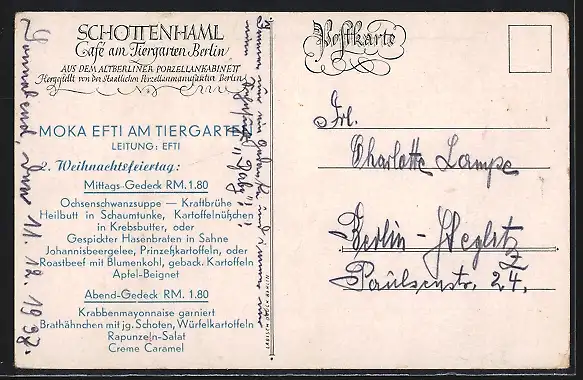 SCHOTTENHAML
Café am Tiergarten Berlin
AUS DEM ALTBERLINER PORZELLANKABINETT
Hergestellt von der Staatlichen Porzellanmanufaktur Berlin
MOKA EFTI AM TIERGARTEN
LEITUNG: EFTI
2. Weihnachtsfeiertag:
Mittags-Gedeck RM. 1.80
Ochsenschwanzsuppe — Kraftbrühe
Heilbutt in Schaumtunke, Kartoffelnüßchen
in Krebsbutter, oder
Gespickter Hasenbraten in Sahne
Johannisbeergelee, Prinzeßkartoffeln, oder
Roastbeef mit Blumenkohl, geback. Kartoffeln
Apfel-Beignet
Abend-Gedeck RM. 1.80
Krabbenmayonnaise garniert
Brathähnchen mit jg. Schoten, Würfelkartoffeln
Rapunzeln-Salat
Creme Caramel
Sonnabend, den 11. 12. 1937.
Postkarte
Frl.
Charlotte Lampe
Berlin-Steglitz
Paulsenstr. 24.